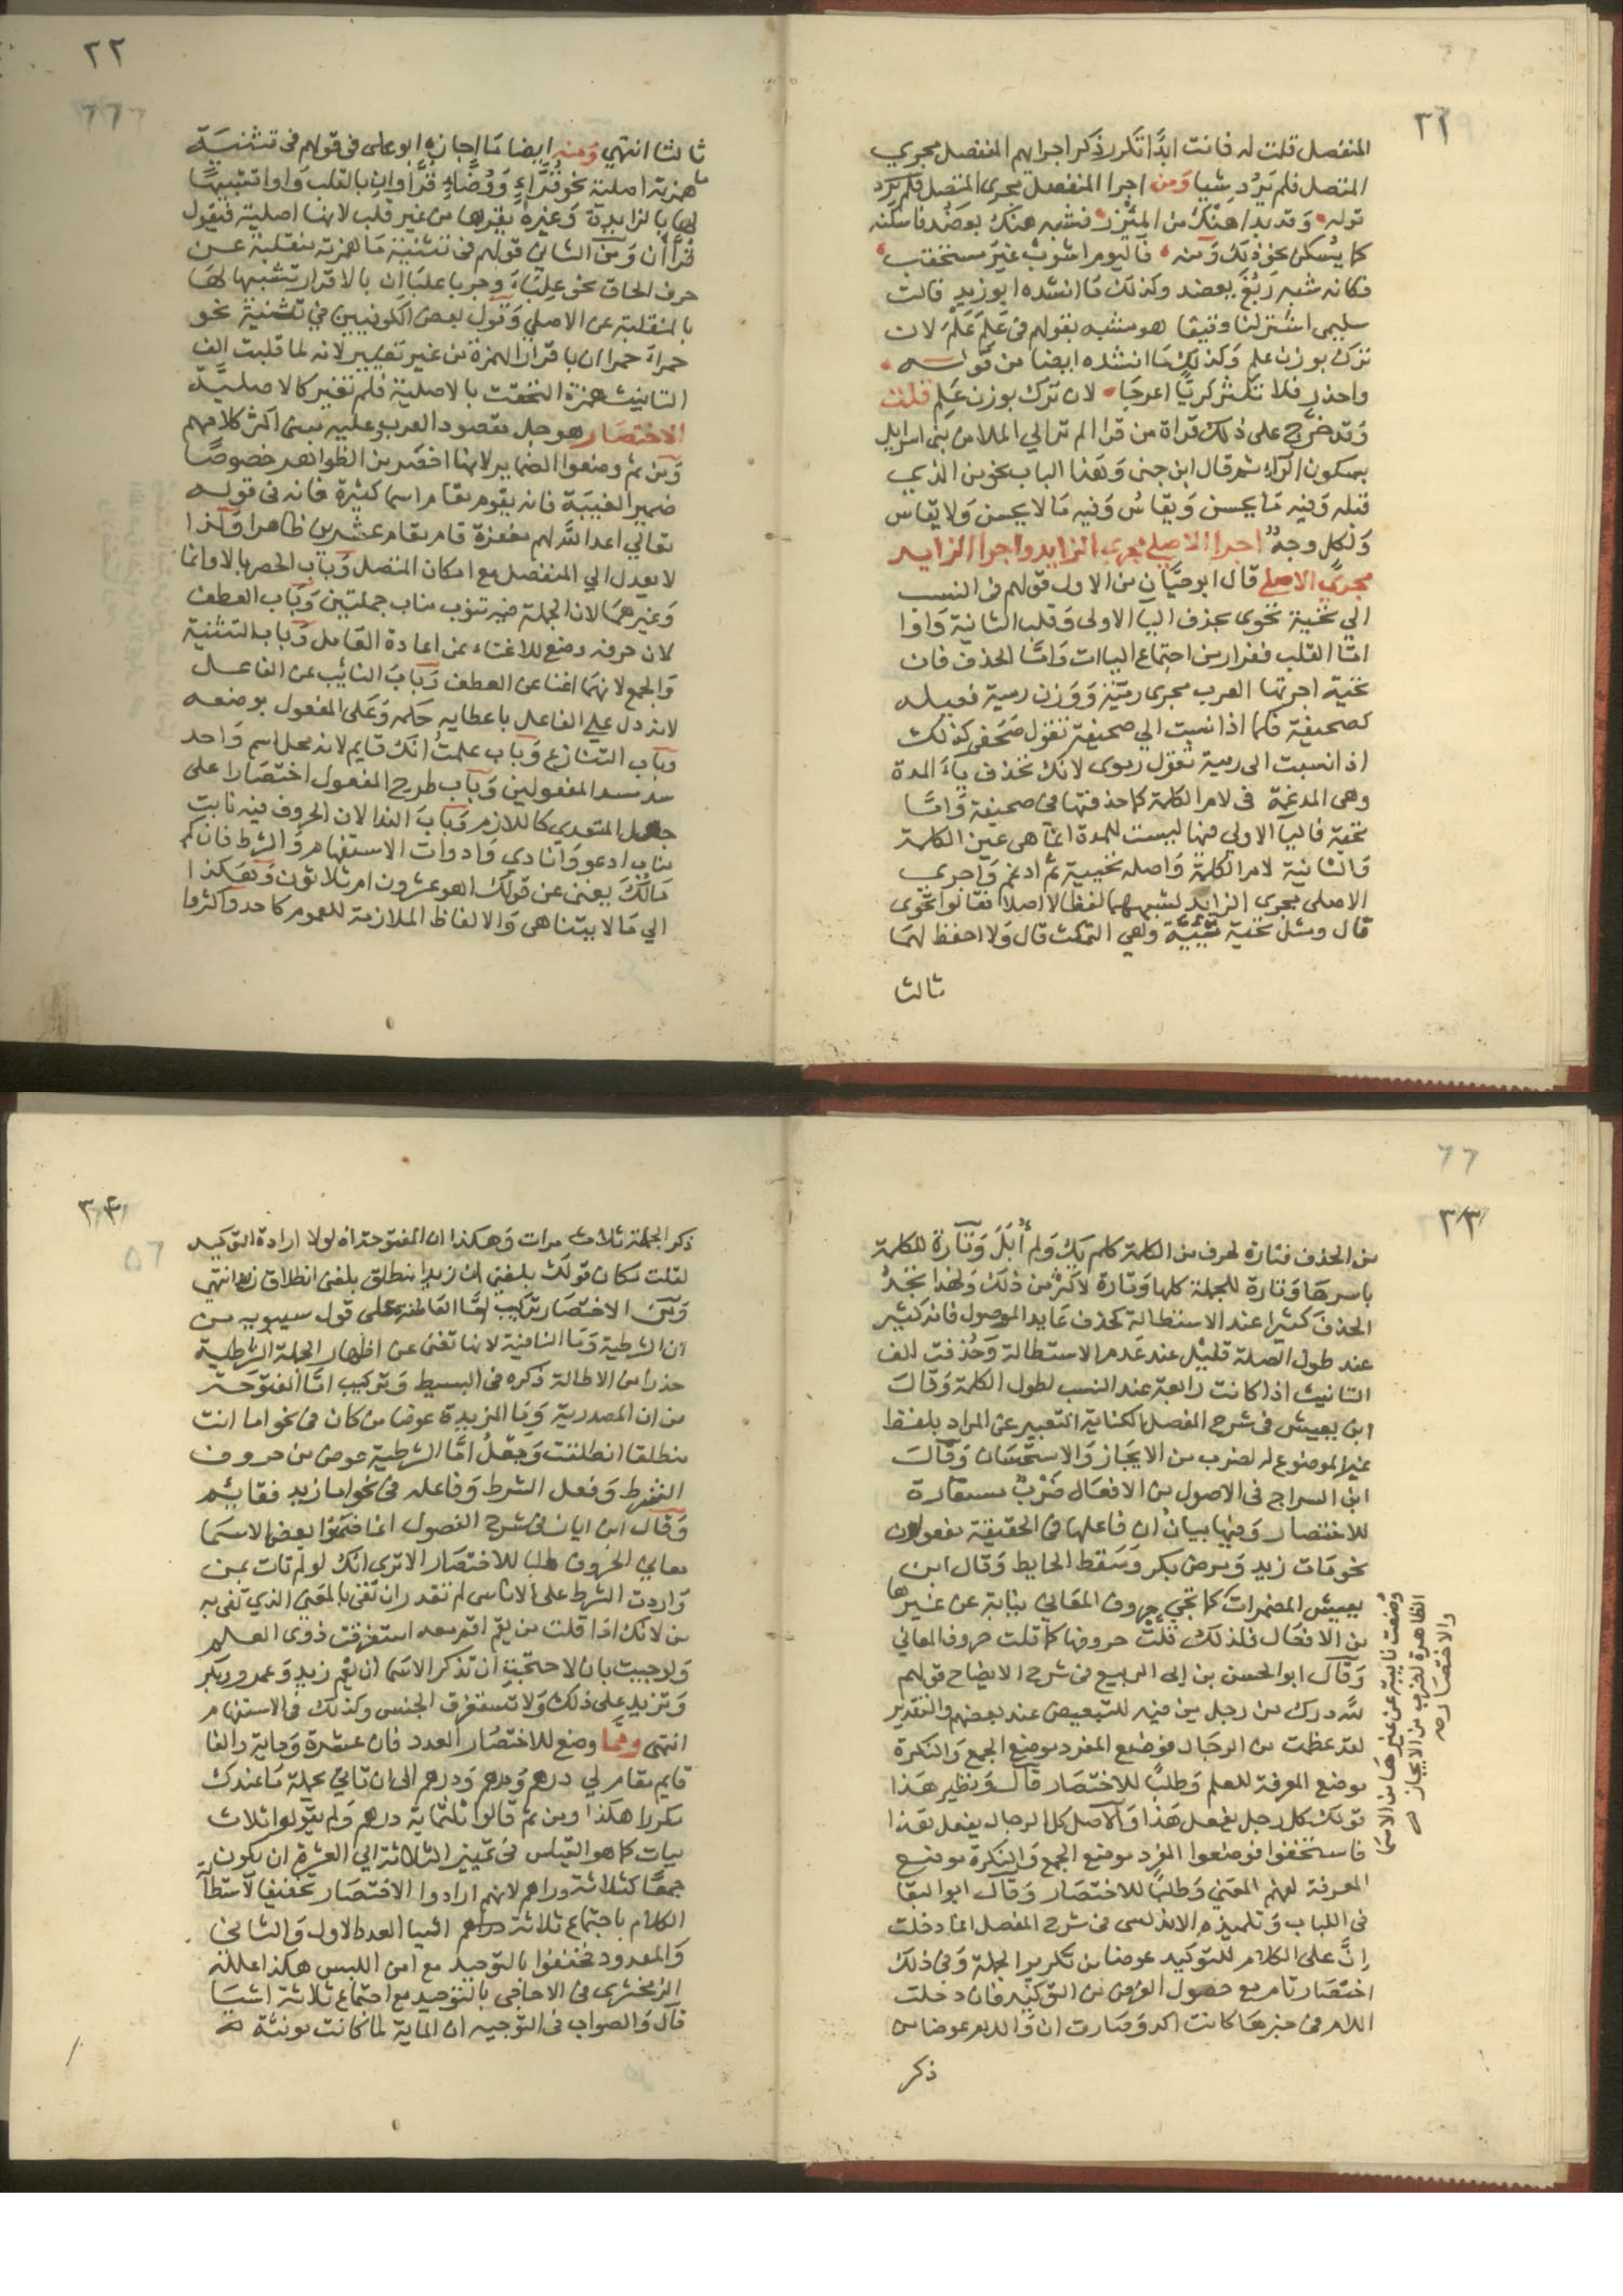 ٣١
المنفصل قلت له فانت ابدا تكرر ذكر اجرايهم المنفصل مجري
المتصل فلم يرد شيا ومن اجرا المنفصل مجرى المتصل فلم يرد
قوله وقد بدا هنك من المئزر فشبه هنك بعضد فاسكنه
كما يسكن نحو ذلك ومنه فاليوم اشرب غير مستحقب
فكانه شبه ربغ بعضد وكذلك ما انشده ابو زيد قالت
سليمى اشتر لنا دقيقا هو مشبه بقولهم في علم علم لان
ترل بوزن علم وكذلك ما انشده ايضا من قوله
واحذر فلا تكتر كريا اعوجا لان ترك بوزن علم قلت
وقد خرج على ذلك قراة من قرا الم تر الي الملا من بني اسرايل
بسكون الراء ثم قال ابن جنى وهذا الباب نحو من الذي
قبله وفيه ما يحسن ويقاس وفيه ما لا يحسن ولا يقاس
ولكل وجه اجرا الاصلي مجرى الزايد واجرا الزايد
مجرى الاصلي قال ابو حيان من الاول قولهم في النسب
الي تحية تحوى بحذف اليا الاولى وقلب الثانية واوا
اما القلب ففرار من اجتماع الياات واما الحذف فان
تحية اجرتها العرب مجرى رمية ووزن رمية فعيله
كصحيفة فكما اذا نسبت الي صحيفة تقول صحفي كذلك
اذا نسبت الى رمية تقول رموى لانك تحذف ياء المدة
وهي المدغمة في لام الكلمة كما حذفتها في صحيفة واما
تحية فاليا الاولي فيها ليست للمدة انما هي عين الكلمة
والثانية لام الكلمة واصله تحيية ثم ادغم واجري
الاصلى مجرى الزايد لشبههما لفظا لا اصلا فقالوا تحوى
قال ومثل تحية تئية وهي التمكث قال ولا احفظ لهما
ثالثا
٢٢
ثالثا انتهي ومنه ايضا ما اجازه ابو على في قولهم في تثنية
ما همزته اصلية نحو قراء ووضاء قراوان بالقلب واوا تشبيها
لها بالزايدة وغيره يقرها من غير قلب لانها اصلية فيقول
قراأن ومن الثاني قولهم في تثنية ما همزته منقلبة عن
حرف الحاق نحو علباء وحربا علباان بالاقرار تشبيها لها
بالمنقلبة عن الاصلي وقول بعض الكوفيين في تثنية نحو
حمراء حمراان باقرار الهمزة من غير تغيير لانه لما قلبت الف
التانيث همزة التحقت بالاصلية فلم تغير كالاصلية
الاختصار هو جل مقصود العرب وعليه مبنى اكثر كلامهم
ومن ثم وضعوا الضماير لانها اخصر من الظواهر خصوصا
ضمير الغيبة فانه يقوم مقام اسما كثيرة فانه في قوله
تعالي اعد الله لهم مغفرة قام مقام عشرين ظاهرا ولذا
لا يعدل الي المنفصل مع امكان المتصل وباب الحصر بالا وانما
وغيرهما لان الجملة فيه تنوب مناب جملتين وباب العطف
لان حرفه وضع للاغناء عن اعادة العامل وباب التثنية
والجمع لانهما اغنا عن العطف وباب النايب عن الفاعل
لانه دل علي الفاعل باعطايه حكمه وعلى المفعول بوضعه
وباب التنازع وباب علمت انك قايم لانه محل اسم واحد
سد مسد المفعولين وباب طرح المفعول اختصارا على
جعل المتعدي كاللازم وباب الندا لان الحروف فيه نابت
مناب ادعو وانادي وادوات الاستفهام والشرط فان كم
مالك يغني عن قولك اهو عشرون ام ثلاثون وهكذا
الي مالا يتناهى والالفاظ الملازمة للعموم كاحد واكثروا
٣٣
من الحذف فتارة لحرف من الكلمة كلم يك ولم أبل وتارة للكلمة
باسرها وتارة للجملة كلها وتارة لاكثر من ذلك ولهذا تجد
الحذف كثيرا عند الاستطالة كحذف عايد الموصول فانه كثير
عند طول الصلة قليل عند عدم الاستطالة وحذفت الف
التانيث اذا كانت رابعة عند النسب لطول الكلمة وقال
ابن يعيش في شرح المفصل الكناية التعبير عن المراد بلفظ
غير الموضوع له لضرب من الايجاز والاستحسان وقال
ابن السراج في الاصول من الافعال ضرب مستعارة
للاختصار وفيها بيان ان فاعلها في الحقيقة مفعولون
نحو مات زيد ومرض بكر وسقط الحايط وقال ابن
يعيش المضمرات كما تجي حروف المعاني نيابة عن غيرها
من الافعال فلذلك قلت حروفها كما قلت حروف المعاني
وضعت نايبة عن غيرها من الاسما
الظاهرة لضرب من الايجاز
والاختصار صح
وقال ابو الحسن بن ابي الربيع في شرح الايضاح قولهم
لله درك من رجل من فيه للتبعيض عند بعضهم والتقدير
لقد عظمت من الرجال فوضع المفرد موضع الجمع والنكرة
موضع المعرفة للعلم وطلبا للاختصار قال ونظير هذا
قولك كل رجل يفعل هذا والاصل كل الرجال يفعل هذا
فاستخفوا فوضعوا المفرد موضع الجمع والنكرة موضع
المعرفة لفهم المعني وطلبا للاختصار وقال ابوا البقا
في اللباب وتلميذه الاندلسى في شرح المفصل انما دخلت
إن على الكلام للتوكيد عوضا من تكرير الجملة وفي ذلك
اختصار تام مع حصول الغرض من التوكيد فان دخلت
اللام في خبرها كانت اكد وصارت ان واللام عوضا من
ذكر
٣٤
ذكر الجملة ثلاث مرات وهكذا ان المفتوحة اذ لولا ارادة التوكيد
لقلت مكان قولك بلغني ان زيدا منطلق بلغني انطلاق زيد انتهي
ومن الاختصار تركيب اما العاطفة على قول سيبويه من
ان الشرطية وما النافية لانها تغني عن اظهار الجملة الشرطية
حذرا من الاطالة ذكره في البسيط وتركيب اما المفتوحة
من ان المصدرية وما المزيدة عوضا من كان في نحو اما انت
منطلقا انطلقت وجعل اما الشرطية عوض من حروف
الشرط وفعل الشرط وفاعله في نحو اما زيد فقايم
وقال ابن اياز في شرح الفصول انما ضمنوا بعض الاسما
معاني الحروف طلبا للاختصار الا ترى انك لو لم تات بمن
واردت الشرط على الاناسى لم تقدر ان تفي بالمعني الذي تفي به
من لانك اذا قلت من يقم اقم معه استغرقت ذوى العلم
ولو جيت بان لاحتجت ان تذكر الاسما ان يقم زيد وعمرو وبكر
وتزيد على ذلك ولا تستغرق الجنس وكذلك في الاستفهام
انتهى ومما وضع للاختصار العدد فان عشرة وماية والفا
قايم مقام لي درهم ودرهم ودرهم الى ان تاتي بجملة ما عندك
مكررا هكذا ومن ثم قالوا ثلثماية درهم ولم يقولوا ثلاث
ميات كما هو القياس في تمييز الثلاثة الي العشرة ان يكون
جمعا كثلاثة دراهم لانهم ارادوا الاختصار تخفيفا لاستطا
الكلام باجتماع ثلاثة اشيا العدد الاول والثاني
والمعدود فخففوا بالتوحيد مع امن اللبس هكذا علله
الزمخشرى في الاحاجى بالتوحيد مع اجتماع ثلاثة اشيا
قال والصواب في التوجيه ان الماية لما كانت مونثة